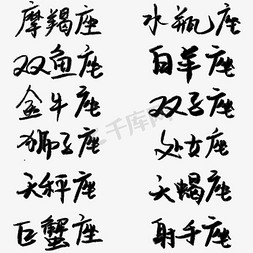 摩羯座 水瓶座
双鱼座 白羊座
金牛座 双子座
狮子座 处女座
天秤座 天蝎座
巨蟹座 射手座
千库网